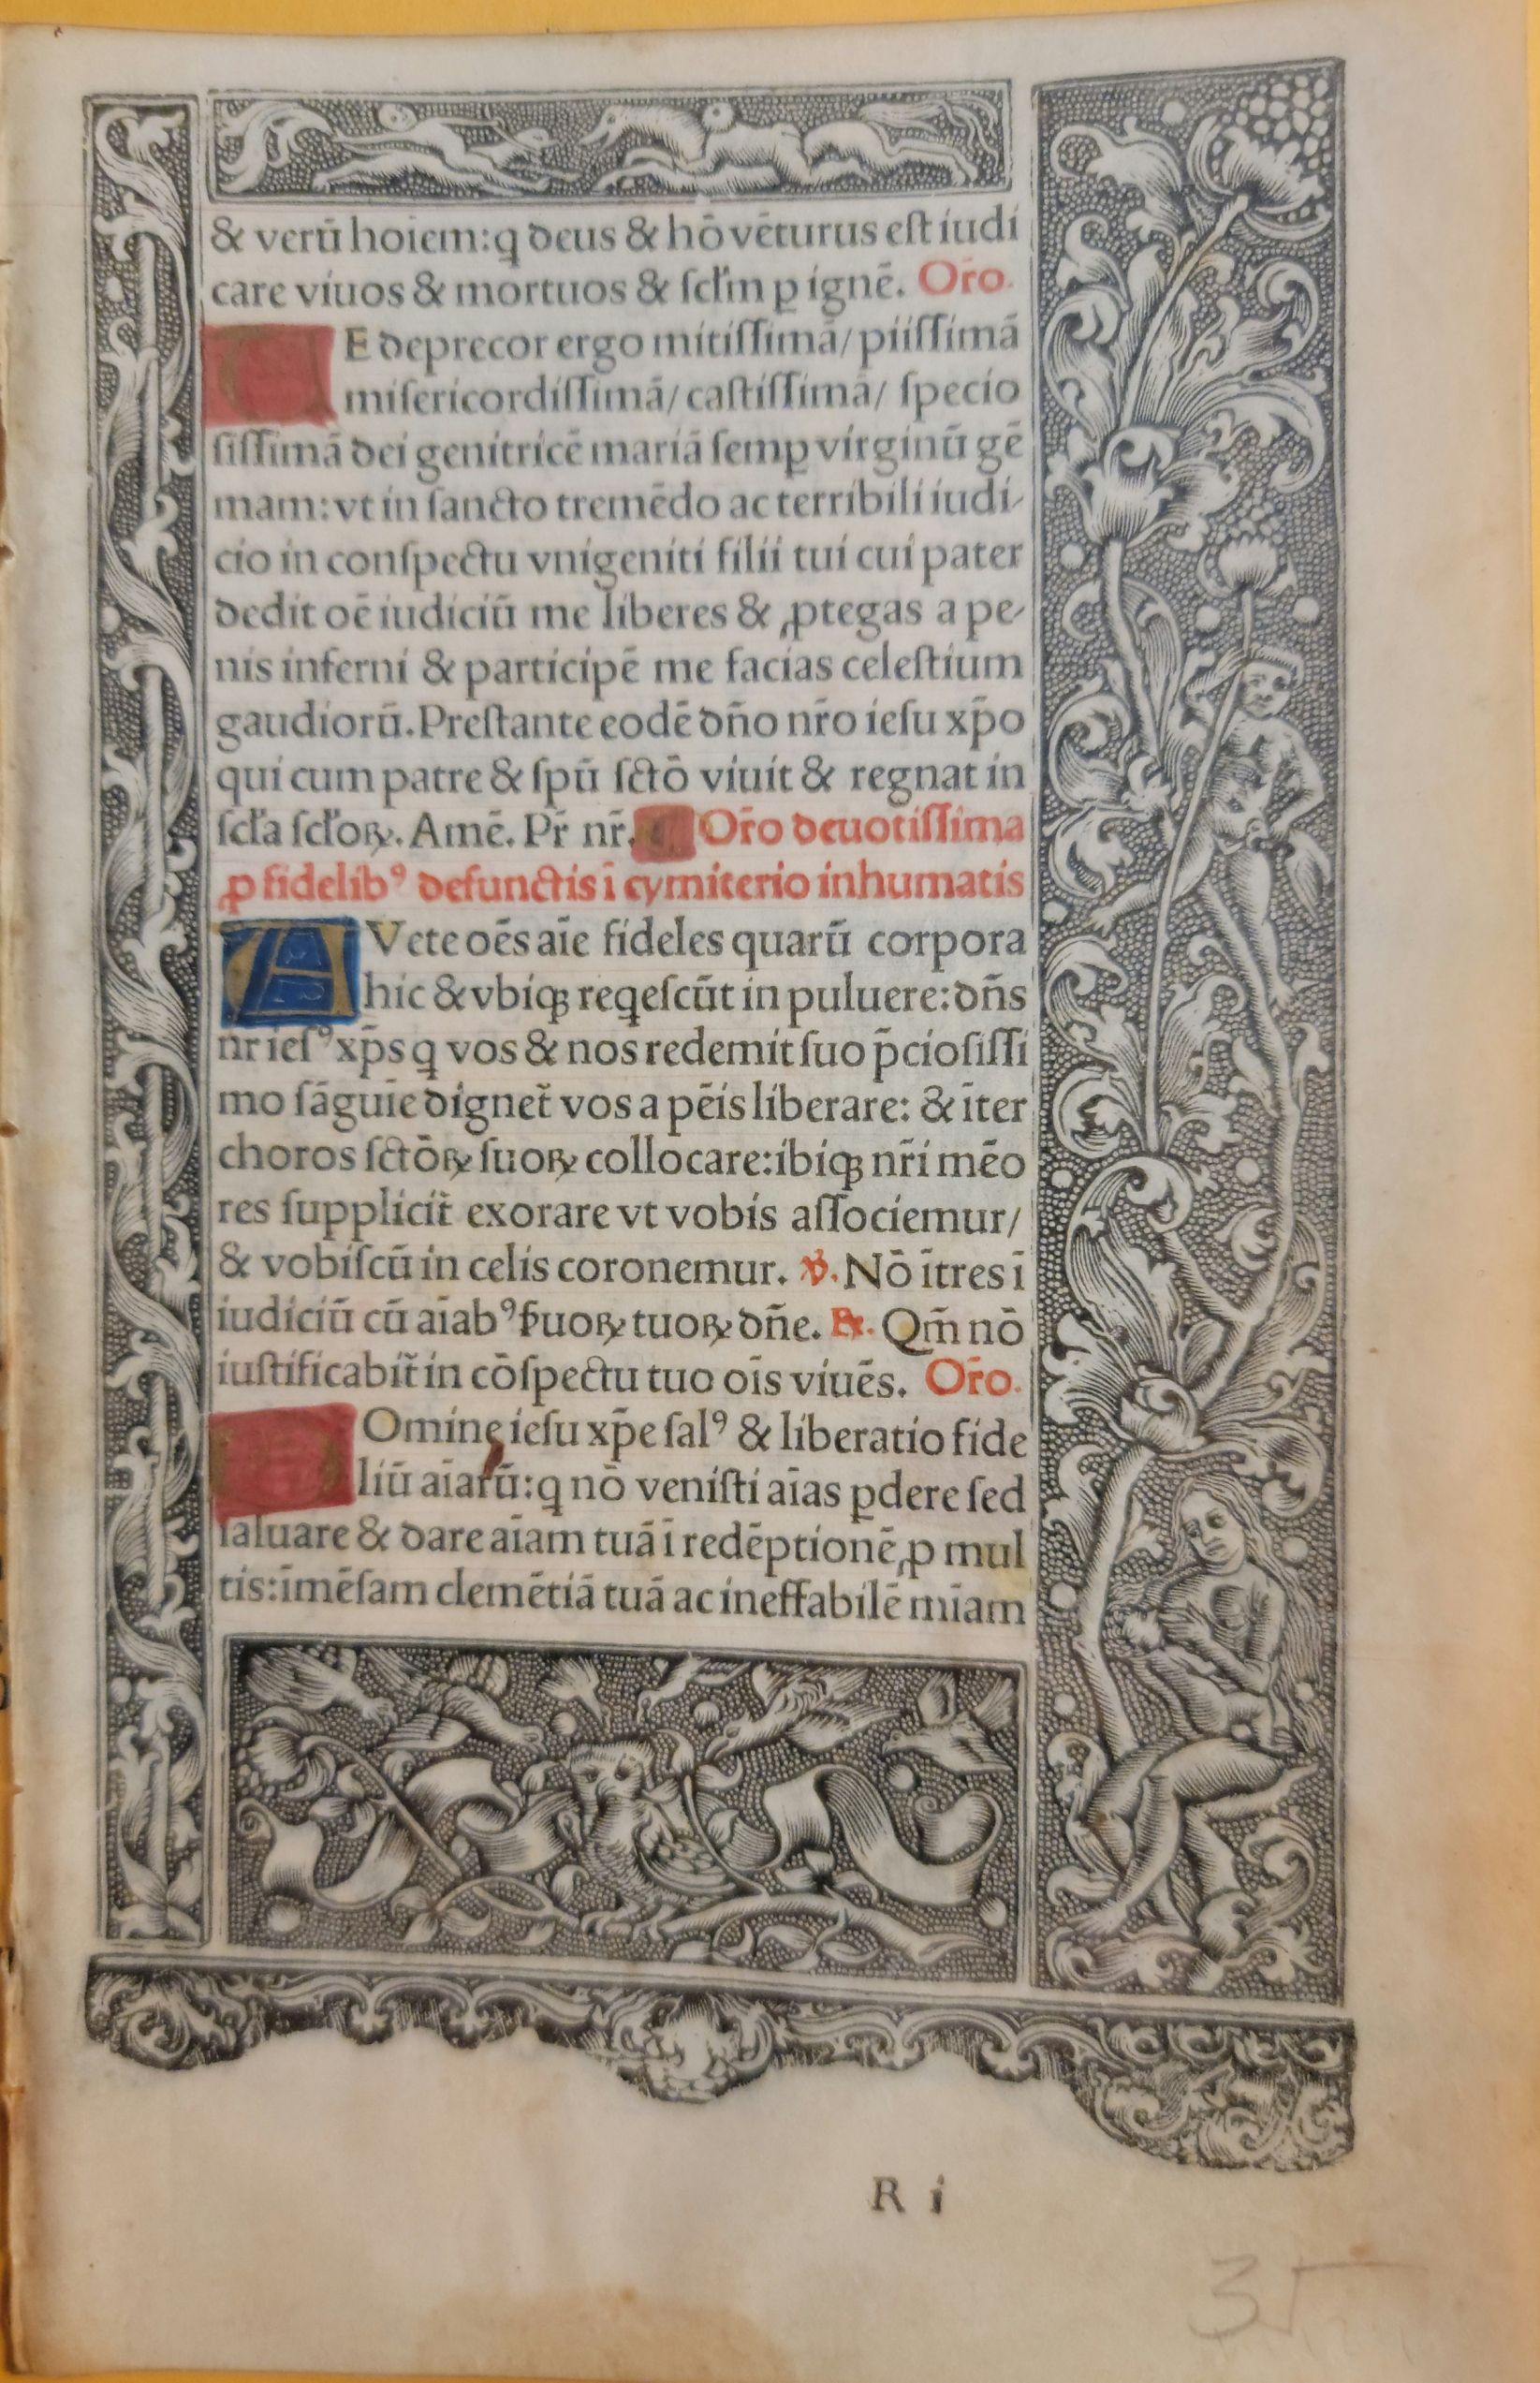 & verū hoiem:q deus & hō vēturus eſt iudi
care viuos & mortuos & ſcl̄m ꝑ ignē. Or̄o.
TE deprecor ergo mitiſſimā/ piiſſimā
miſericordiſſimā/ caſtiſſimā/ ſpecio
ſiſſimā dei genitricē mariā ſemꝑ virginū gē
mam: vt in ſancto tremēdo ac terribili iudi-
cio in conſpectu vnigeniti filii tui cui pater
dedit oē iudiciū me liberes & ꝓtegas a pe-
nis inferni & participē me facias celeſtium
gaudiorū. Preſtante eodē dn̄o nr̄o ieſu xp̄o
qui cum patre & ſpū ſctō viuit & regnat in
ſcl̄a ſcl̄oꝝ. Amē. Pr̄ nr̄. Or̄o deuotiſſima
ꝓ fidelibꝰ defunctis ī cymiterio inhumatis
AVete oēs aīe fideles quarū corpora
hic & vbiqꝫ reqeſcūt in puluere: dn̄s
nr ieſꝰ xp̄s q vos & nos redemit ſuo p̄cioſiſſi
mo ſāguīe dignet̄ vos a pēis liberare: & īter
choros ſctōꝝ ſuoꝝ collocare: ibiqꝫ nr̄i mēo
res ſupplicit̄ exorare vt vobis aſſociemur/
& vobiſcū in celis coronemur. ℣. Nō ītres ī
iudiciū cū aīabꝰ ẜuoꝝ tuoꝝ dn̄e. ℞. Qm̄ nō
iuſtificabit̄ in cōſpectu tuo oīs viuēs. Or̄o.
DOmine ieſu xp̄e ſalꝰ & liberatio fide
liū aīarū: q nō veniſti aīas ꝑdere ſed
ſaluare & dare aīam tuā ī redēptionē ꝓ mul
tis: īmēſam clemētiā tuā ac ineffabilē mīam
R i
35